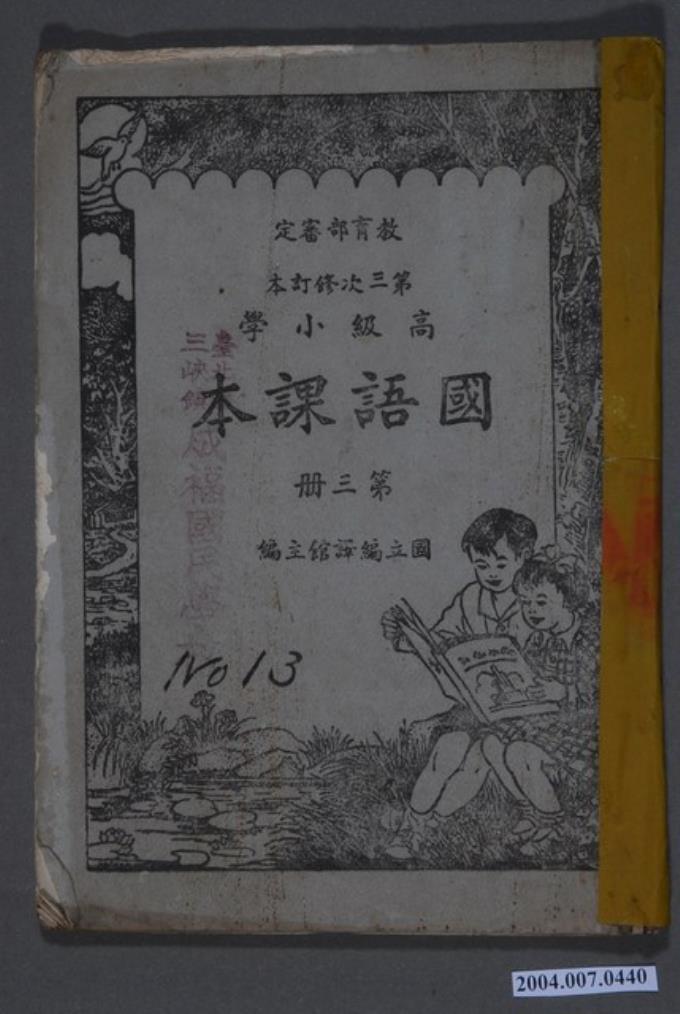 教育部審定
第三次修訂本
高級小學
國語課本
第三册
國立編譯館主編
臺北
三峽鎮
成福國民學
No 13
2004.007.0440